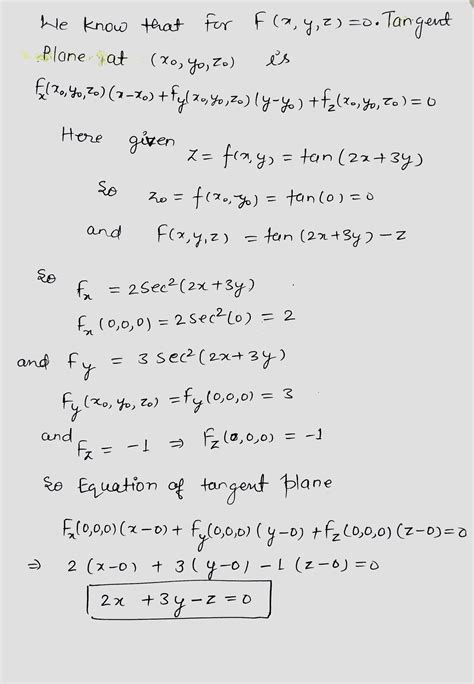 We know that for F(x,y,z)=0. Tangent
Plane at (x₀,y₀,z₀) is
fₓ(x₀,y₀,z₀)(x-x₀)+f_y(x₀,y₀,z₀)(y-y₀)+f_z(x₀,y₀,z₀)=0
Here given
z = f(x,y) = tan(2x+3y)
So z₀ = f(x₀,y₀) = tan(0) = 0
and F(x,y,z) = tan(2x+3y)-z
So fₓ = 2Sec²(2x+3y)
fₓ(0,0,0) = 2sec²(0) = 2
and f_y = 3 sec²(2x+3y)
f_y(x₀,y₀,z₀) = f_y(0,0,0) = 3
and f_z = -1 ⇒ F_z(0,0,0) = -1
So Equation of tangent plane
Fₓ(0,0,0)(x-0)+f_y(0,0,0)(y-0)+f_z(0,0,0)(z-0)=0
⇒ 2(x-0)+3(y-0)-1(z-0)=0
2x+3y-z=0